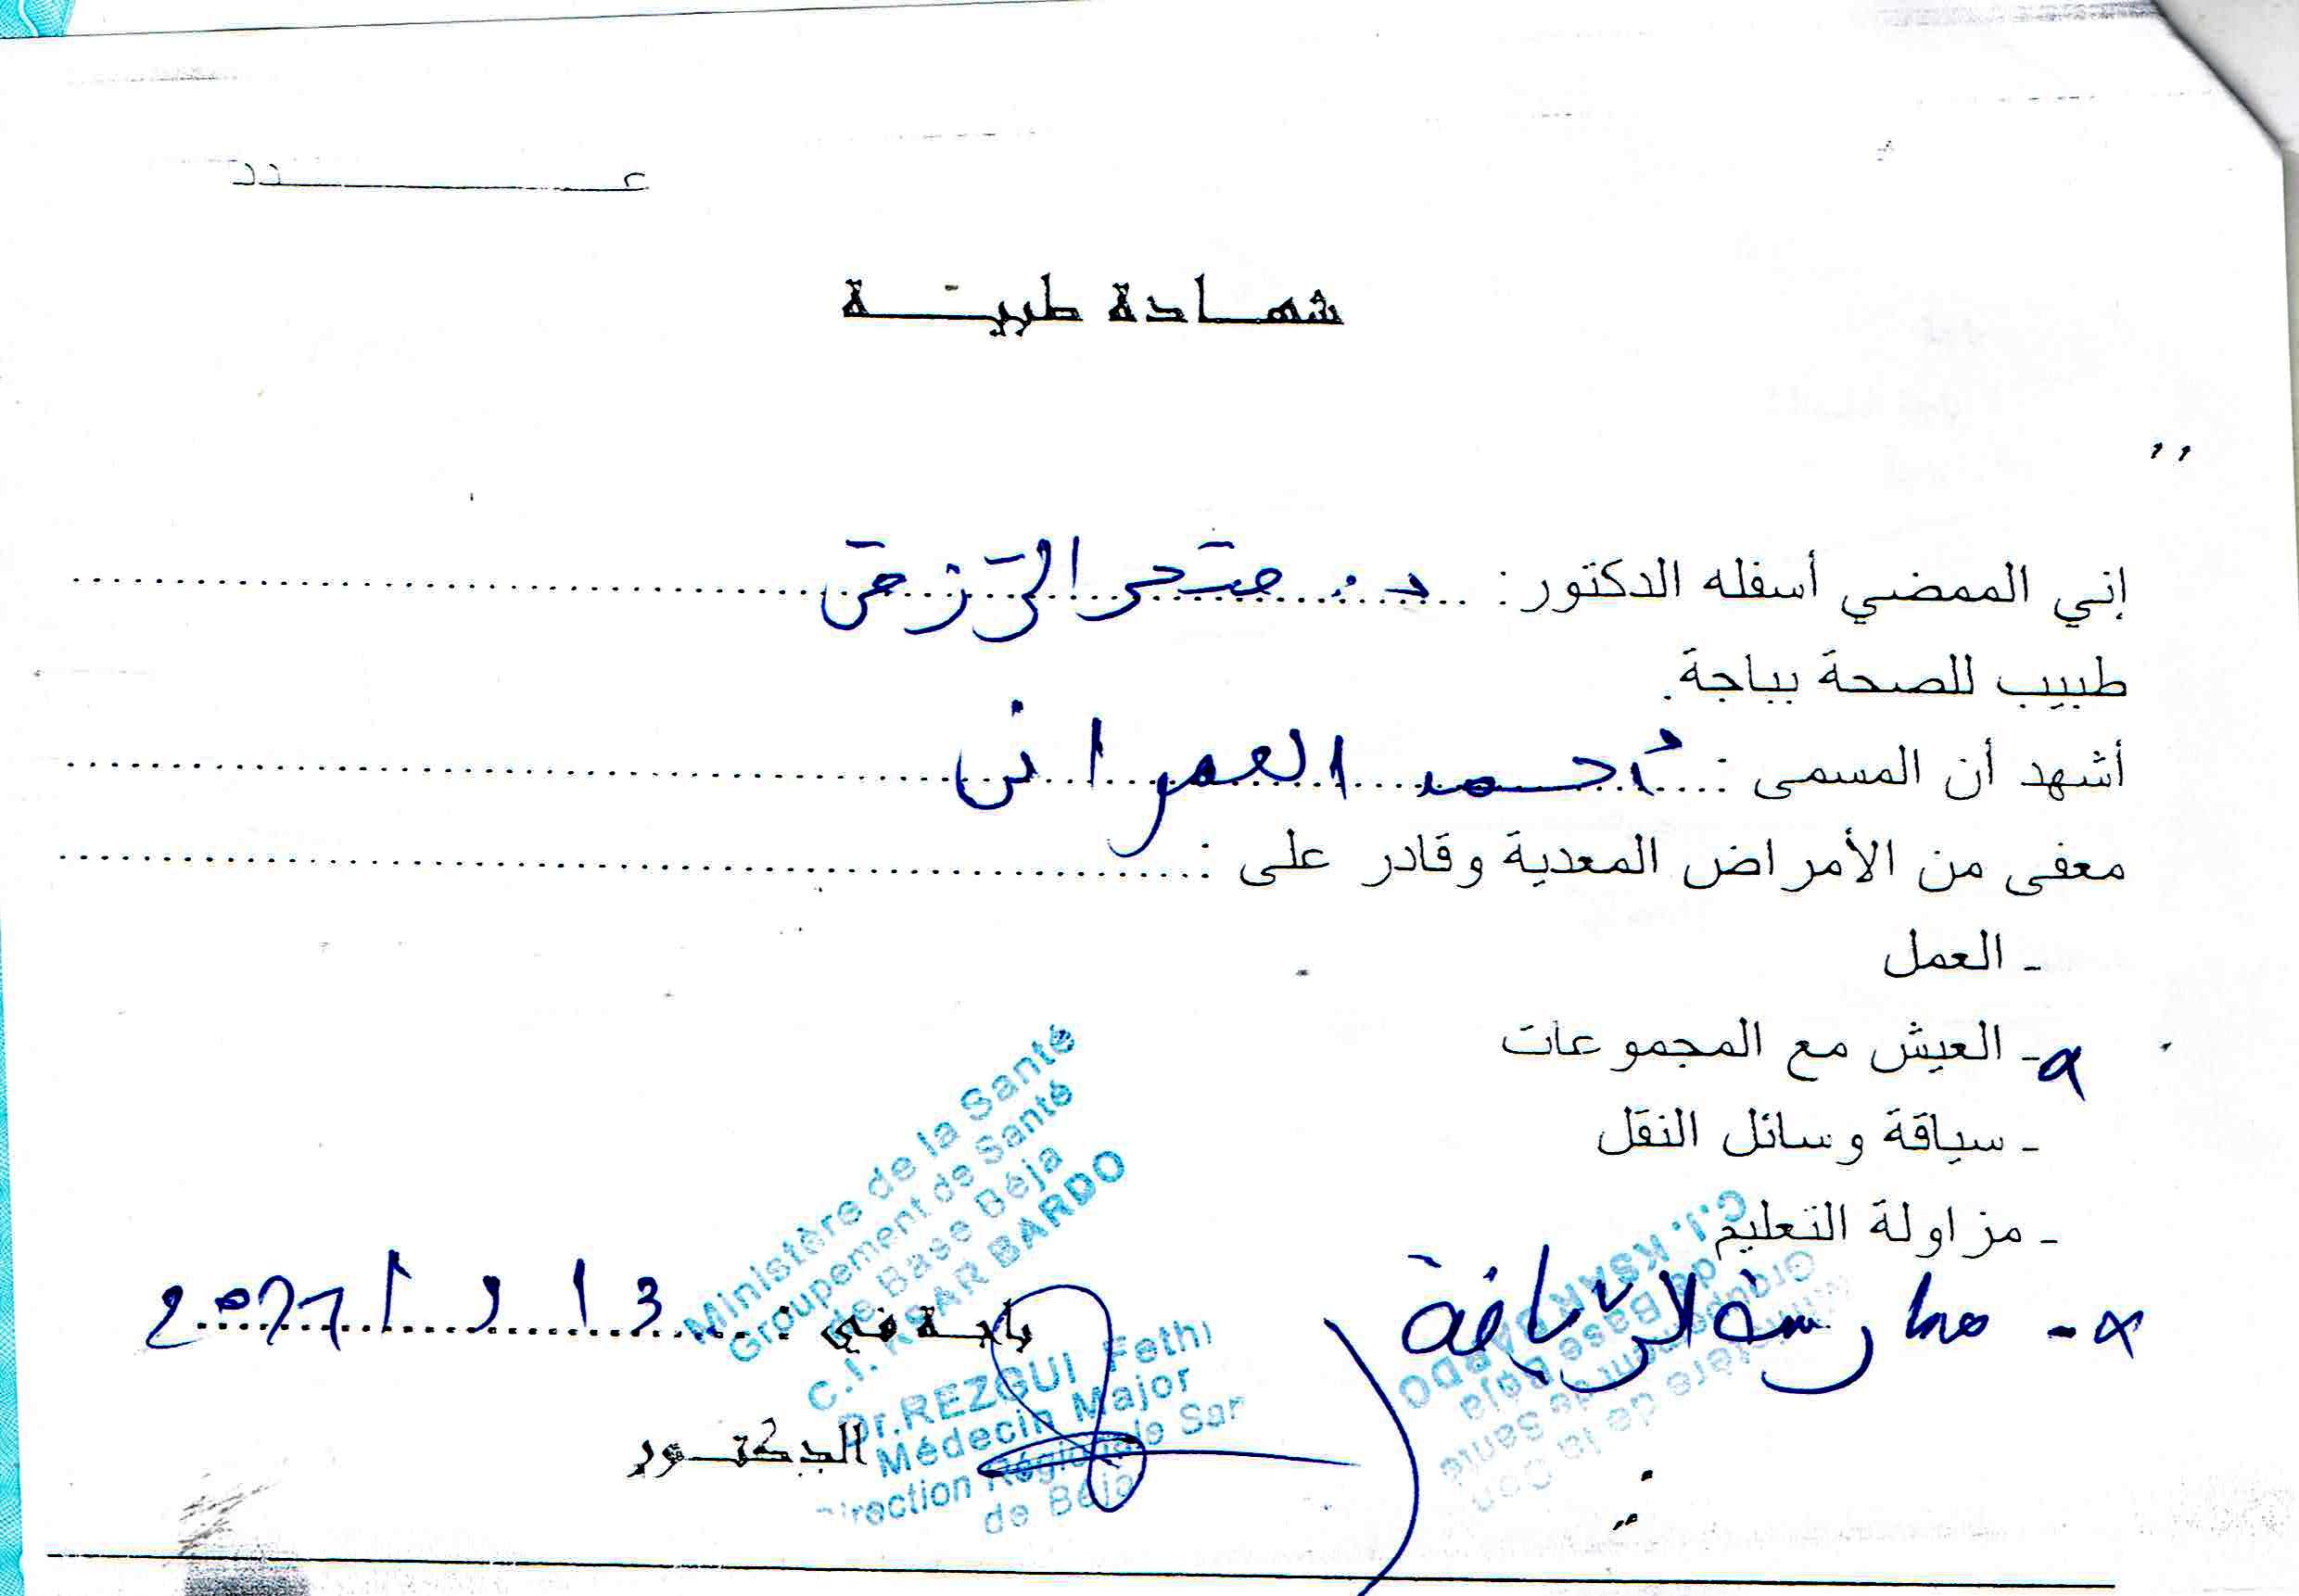 عــــدد
شهــادة طبيــة
إني الممضي أسفله الدكتور : د. فتحي الرزقي
طبيب للصحة بباجة.
أشهد أن المسمى : أحمد العمراني
معفى من الأمراض المعدية وقادر على :
- العمل
- العيش مع المجموعات
- سياقة وسائل النقل
- مزاولة التعليم
- ممارسة الرياضة
باجــة في :
الدكتــور
Ministère de la Santé
Groupement de Santé
de Base Béja
C.I. KSAR BARDO
Dr. REZGUI Fethi
Médecin Major
Direction Régionale
de Béja
C.I. KSAR BARDO